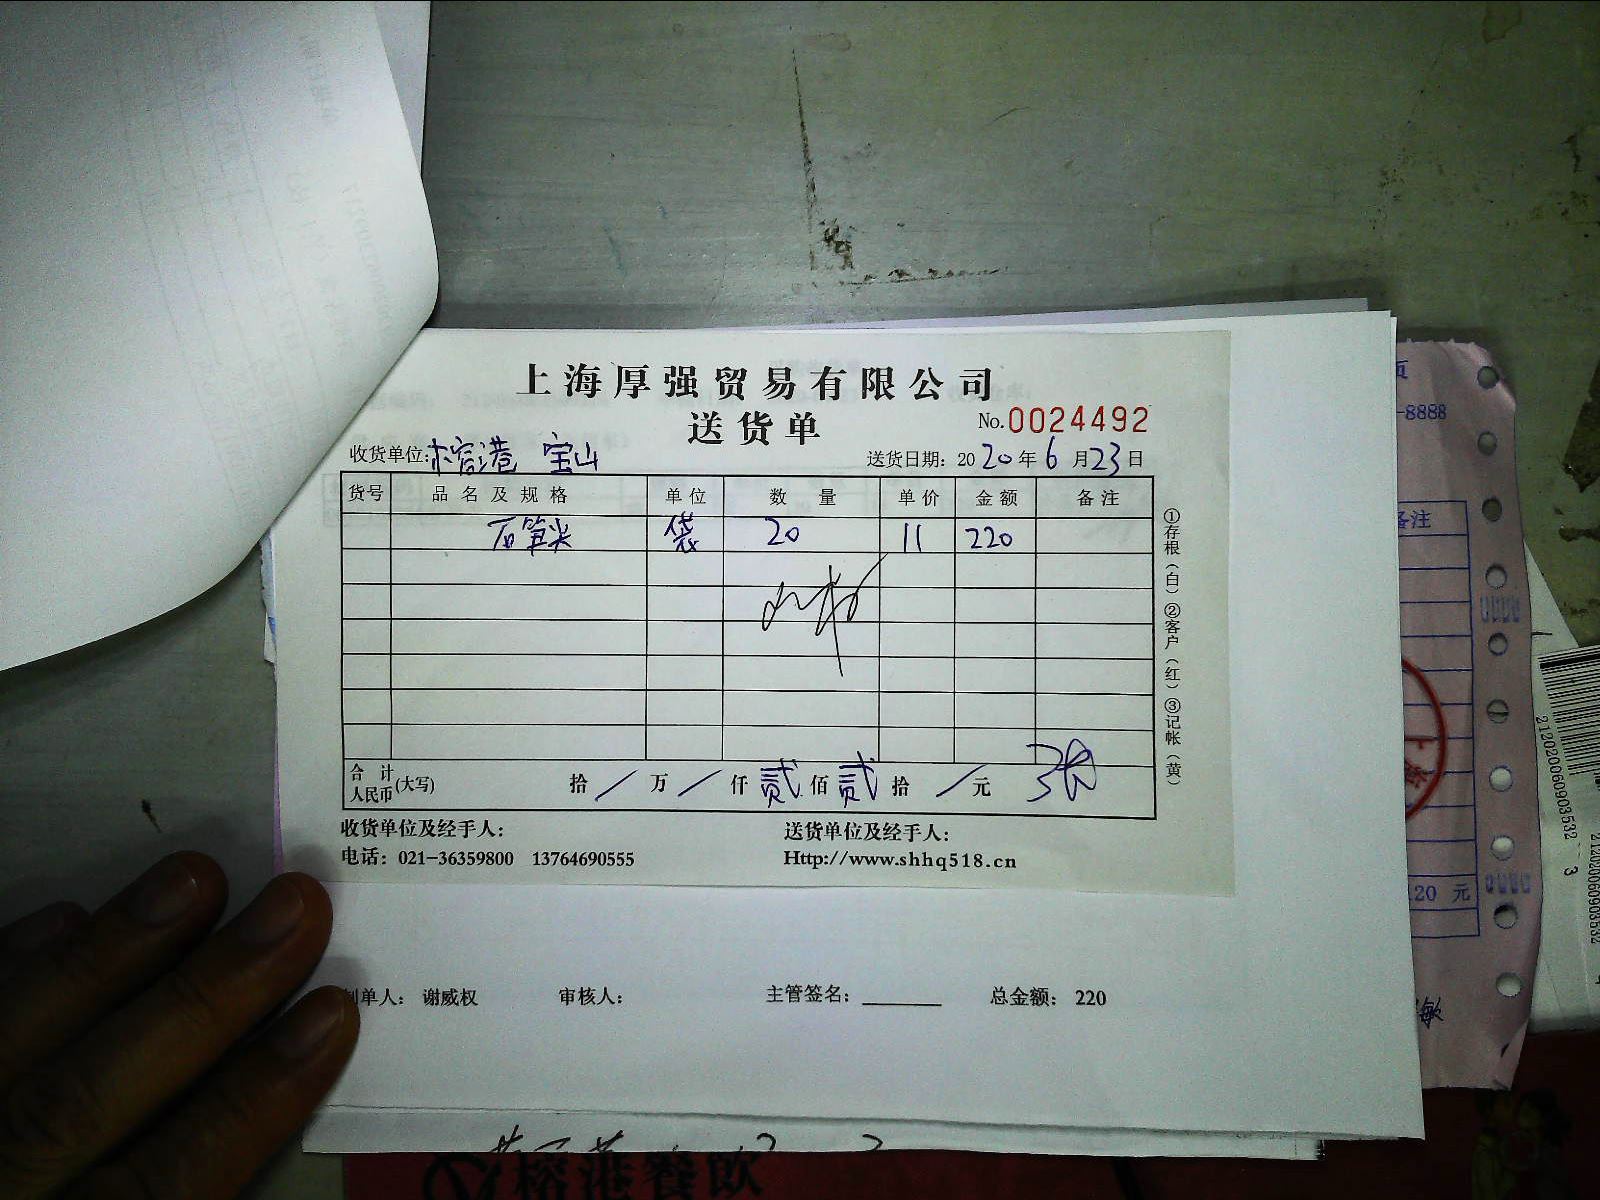 上海厚强贸易有限公司
送货单
No.0024492
收货单位: 榕港 宝山
送货日期: 2020年6月23日
货号 品名及规格 单位 数量 单价 金额 备注
石笋尖 袋 20 11 220
合计人民币(大写) 拾/万/仟贰佰贰拾/元
①存根(白)②客户(红)③记帐(黄)
收货单位及经手人: 送货单位及经手人:
电话: 021-36359800 13764690555 Http://www.shhq518.cn
制单人: 谢威权 审核人: 主管签名: 总金额: 220
页
-8888
备注
20 元
敏
212020060903532
3
212020060903532
榕港餐饮